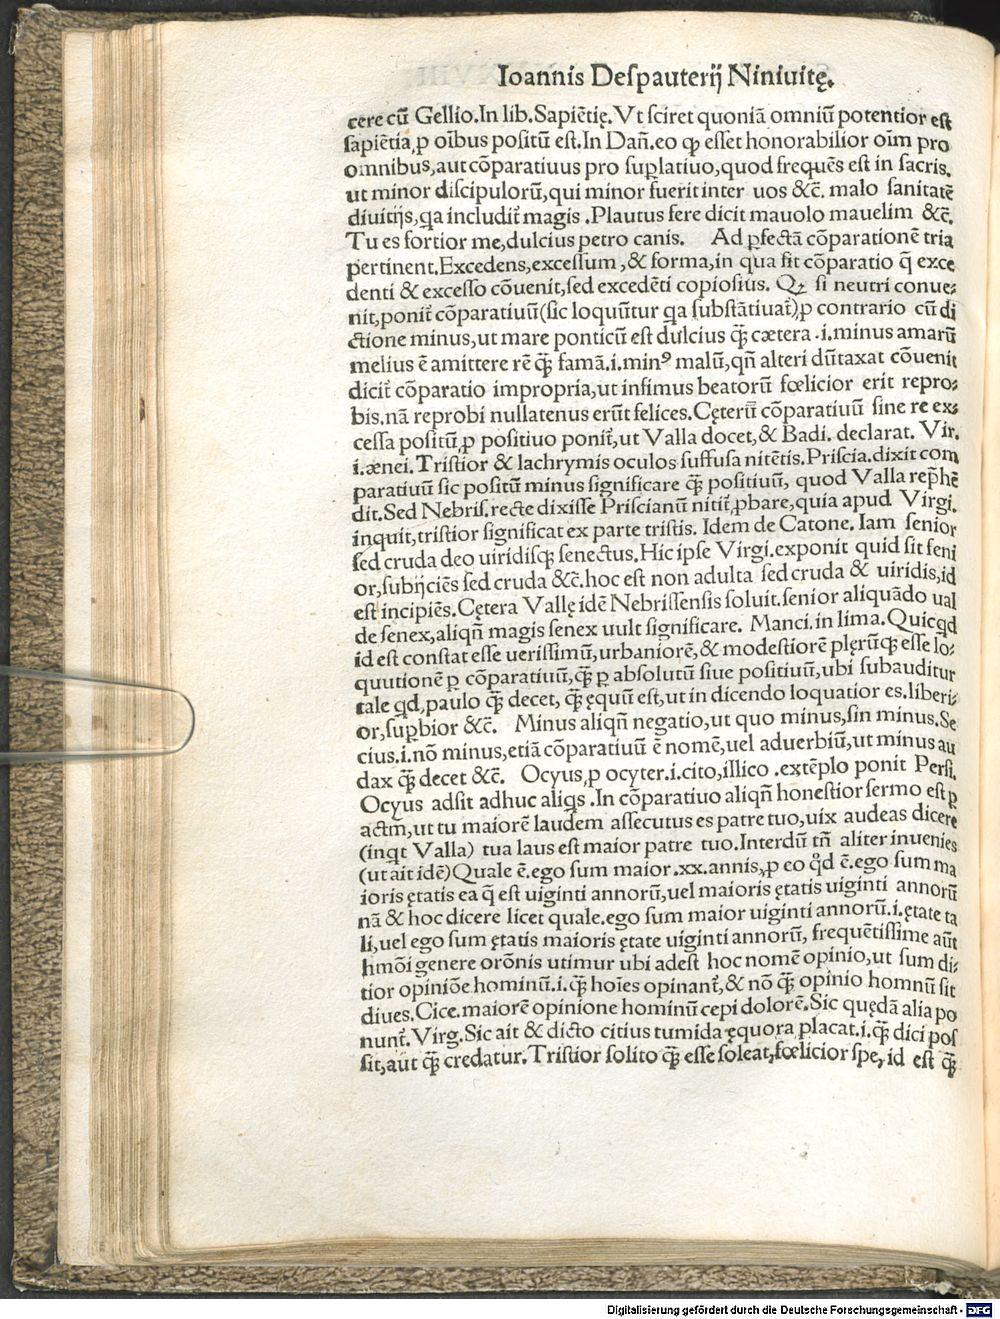 Ioannis Deſpauterij Niniuitę.
cere cū Gellio. In lib. Sapiētię. Vt ſciret quoniā omniū potentior eſt
ſapiētia, ꝓ oībus poſitū eſt. In Dañ. eo ꝙ eſſet honorabilior oīm pro
omnibus, aut cōparatiuus pro ſuꝑlatiuo, quod frequēs eſt in ſacris.
ut minor diſcipulorū, qui minor fuerit inter uos &c̄. malo ſanitatē
diuitijs, qa includit̃ magis. Plautus fere dicit mauolo mauelim &c̄.
Tu es fortior me, dulcius petro canis. Ad ꝑfectā cōparationē tria
pertinent. Excedens, exceſſum, & forma, in qua fit cōparatio q̄ exce
denti & exceſſo cōuenit, ſed excedēti copioſius. Qꝫ ſi neutri conue⸗
nit, ponit̃ cōparatiuū (ſic loquūtur qa ſubſtātiuat̃) ꝑ contrario cū di
ctione minus, ut mare ponticū eſt dulcius q̄ꝫ cætera .i. minus amarū
melius ē amittere rē q̄ꝫ famā .i. minꝰ malū, qñ alteri dūtaxat cōuenit
dicit̃ cōparatio impropria, ut infimus beatorū fœlicior erit repro⸗
bis. nā reprobi nullatenus erūt felices. Cęterū cōparatiuū ſine re ex⸗
ceſſa poſitū, ꝓ poſitiuo ponit̃, ut Valla docet, & Badi. declarat. Vir.
i. ænei. Triſtior & lachrymis oculos ſuffuſa nitētis. Priſcia. dixit com
paratiuū ſic poſitū minus ſignificare q̄ꝫ poſitiuū, quod Valla rep̃hē
dit. Sed Nebriſ. recte dixiſſe Priſcianū nitit̃ ꝓbare, quia apud Virgi.
inquit, triſtior ſignificat ex parte triſtis. Idem de Catone. Iam ſenior
ſed cruda deo uiridiſqꝫ ſenectus. Hic ipſe Virgi. exponit quid ſit ſeni
or, ſubijciēs ſed cruda &c̄. hoc eſt non adulta ſed cruda & uiridis, id
eſt incipiēs. Cętera Vallę idē Nebriſſenſis ſoluit. ſenior aliquādo ual
de ſenex, aliqñ magis ſenex uult ſignificare. Manci. in lima. Quicqd
id eſt conſtat eſſe ueriſſimū, urbaniorē, & modeſtiorē plęrūqꝫ eſſe lo⸗
quutionē ꝑ cōparatiuū, q̄ꝫ ꝑ abſolutū ſiue poſitiuū, ubi ſubauditur
tale qd, paulo q̄ꝫ decet, q̄ꝫ ęquū eſt, ut in dicendo loquatior es. liberi⸗
or, ſuꝑbior &c̄. Minus aliqñ negatio, ut quo minus, ſin minus. Se
cius .i. nō minus, etiā cōparatiuū ē nomē, uel aduerbiū, ut minus au
dax q̄ꝫ decet &c̄. Ocyus, ꝓ ocyter .i. cito, illico. extēplo ponit Perſi.
Ocyus adſit adhuc aliqs. In cōparatiuo aliqñ honeſtior ſermo eſt ꝑ
actm̄, ut tu maiorē laudem aſſecutus es patre tuo, uix audeas dicere
(inqt Valla) tua laus eſt maior patre tuo. Interdū tñ aliter inuenies
(ut ait idē) Quale ē. ego ſum maior .xx. annis, ꝓ eo q̊d ē. ego ſum ma
ioris ętatis ea q̄ eſt uiginti annorū, uel maioris ętatis uiginti annorū
nā & hoc dicere licet quale. ego ſum maior uiginti annorū .i. ętate ta
li, uel ego ſum ętatis maioris ętate uiginti annorū, frequētiſſime aūt
hmōi genere orōnis utimur ubi adeſt hoc nomē opinio, ut ſum di⸗
tior opiniōe hominū .i. q̄ꝫ hoīes opinant̃, & nō q̄ꝫ opinio homnū ſit
diues. Cice. maiorē opinione hominū cepi dolorē. Sic quędā alia po
nunt̃. Virg. Sic ait & dicto citius tumida ęquora placat .i. q̄ꝫ dici poſ
ſit, aūt q̄ꝫ credatur. Triſtior ſolito q̄ꝫ eſſe ſoleat, fœlicior ſpe, id eſt q̄ꝫ
Digitalisierung gefördert durch die Deutsche Forschungsgemeinschaft - DFG